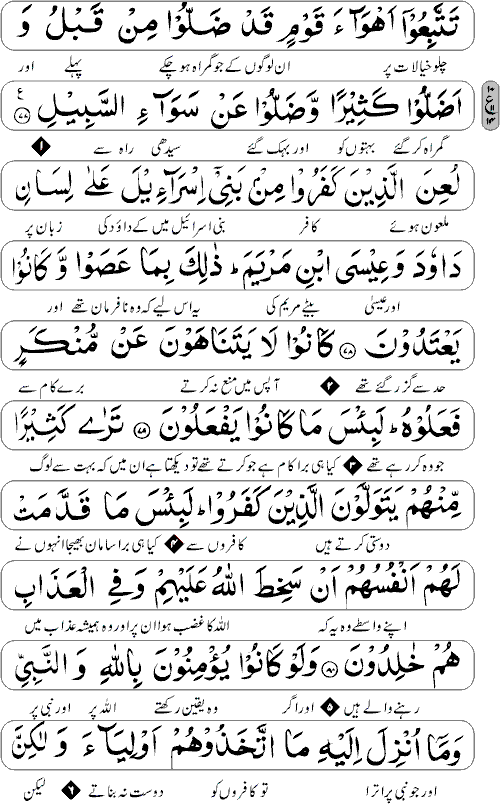 تَتَّبِعُوْۤا اَهْوَآءَ قَوْمٍ قَدْ ضَلُّوْا مِنْ قَبْلُ وَ
چلو خیالات پر ان لوگوں کے جو گمراہ ہو چکے پہلے اور
اَضَلُّوْا كَثِیْرًا وَّضَلُّوْا عَنْ سَوَآءِ السَّبِیْلِ ۷۷ ع
گمراہ کر گئے بہتوں کو اور بہک گئے سیدھی راہ سے ۱
لُعِنَ الَّذِیْنَ كَفَرُوْا مِنْۢ بَنِیْۤ اِسْرَآءِیْلَ عَلٰی لِسَانِ
ملعون ہوئے کافر بنی اسرائیل میں کے داؤد کی زبان پر
دَاوٗدَ وَعِیْسَی ابْنِ مَرْیَمَ ؕ ذٰلِكَ بِمَا عَصَوْا وَّكَانُوْا
اور عیسیٰ بیٹے مریم کی یہ اس لیے کہ وہ نافرمان تھے اور
یَعْتَدُوْنَ ۷۸ كَانُوْا لَا یَتَنَاهَوْنَ عَنْ مُّنْكَرٍ
حد سے گزر گئے تھے ۲ آپس میں منع نہ کرتے برے کام سے
فَعَلُوْهُ ؕ لَبِئْسَ مَا كَانُوْا یَفْعَلُوْنَ ۷۹ تَرٰی كَثِیْرًا
جو وہ کر رہے تھے ۳ کیا ہی برا کام ہے جو کرتے تھے تو دیکھتا ہے ان میں کہ بہت سے لوگ
مِّنْهُمْ یَتَوَلَّوْنَ الَّذِیْنَ كَفَرُوْا ؕ لَبِئْسَ مَا قَدَّمَتْ
دوستی کرتے ہیں کافروں سے ۴ کیا ہی برا سامان بھیجا انہوں نے
لَهُمْ اَنْفُسُهُمْ اَنْ سَخِطَ اللّٰهُ عَلَیْهِمْ وَفِی الْعَذَابِ
اپنے واسطے وہ یہ کہ اللہ کا غضب ہوا ان پر اور وہ ہمیشہ عذاب میں
هُمْ خٰلِدُوْنَ ۸۰ وَلَوْ كَانُوْا یُؤْمِنُوْنَ بِاللّٰهِ وَالنَّبِیِّ
رہنے والے ہیں ۵ اور اگر وہ یقین رکھتے اللہ پر اور نبی پر
وَمَاۤ اُنْزِلَ اِلَیْهِ مَا اتَّخَذُوْهُمْ اَوْلِیَآءَ وَلٰكِنَّ
اور جو نبی پر اترا تو کافروں کو دوست نہ بناتے ۶ لیکن